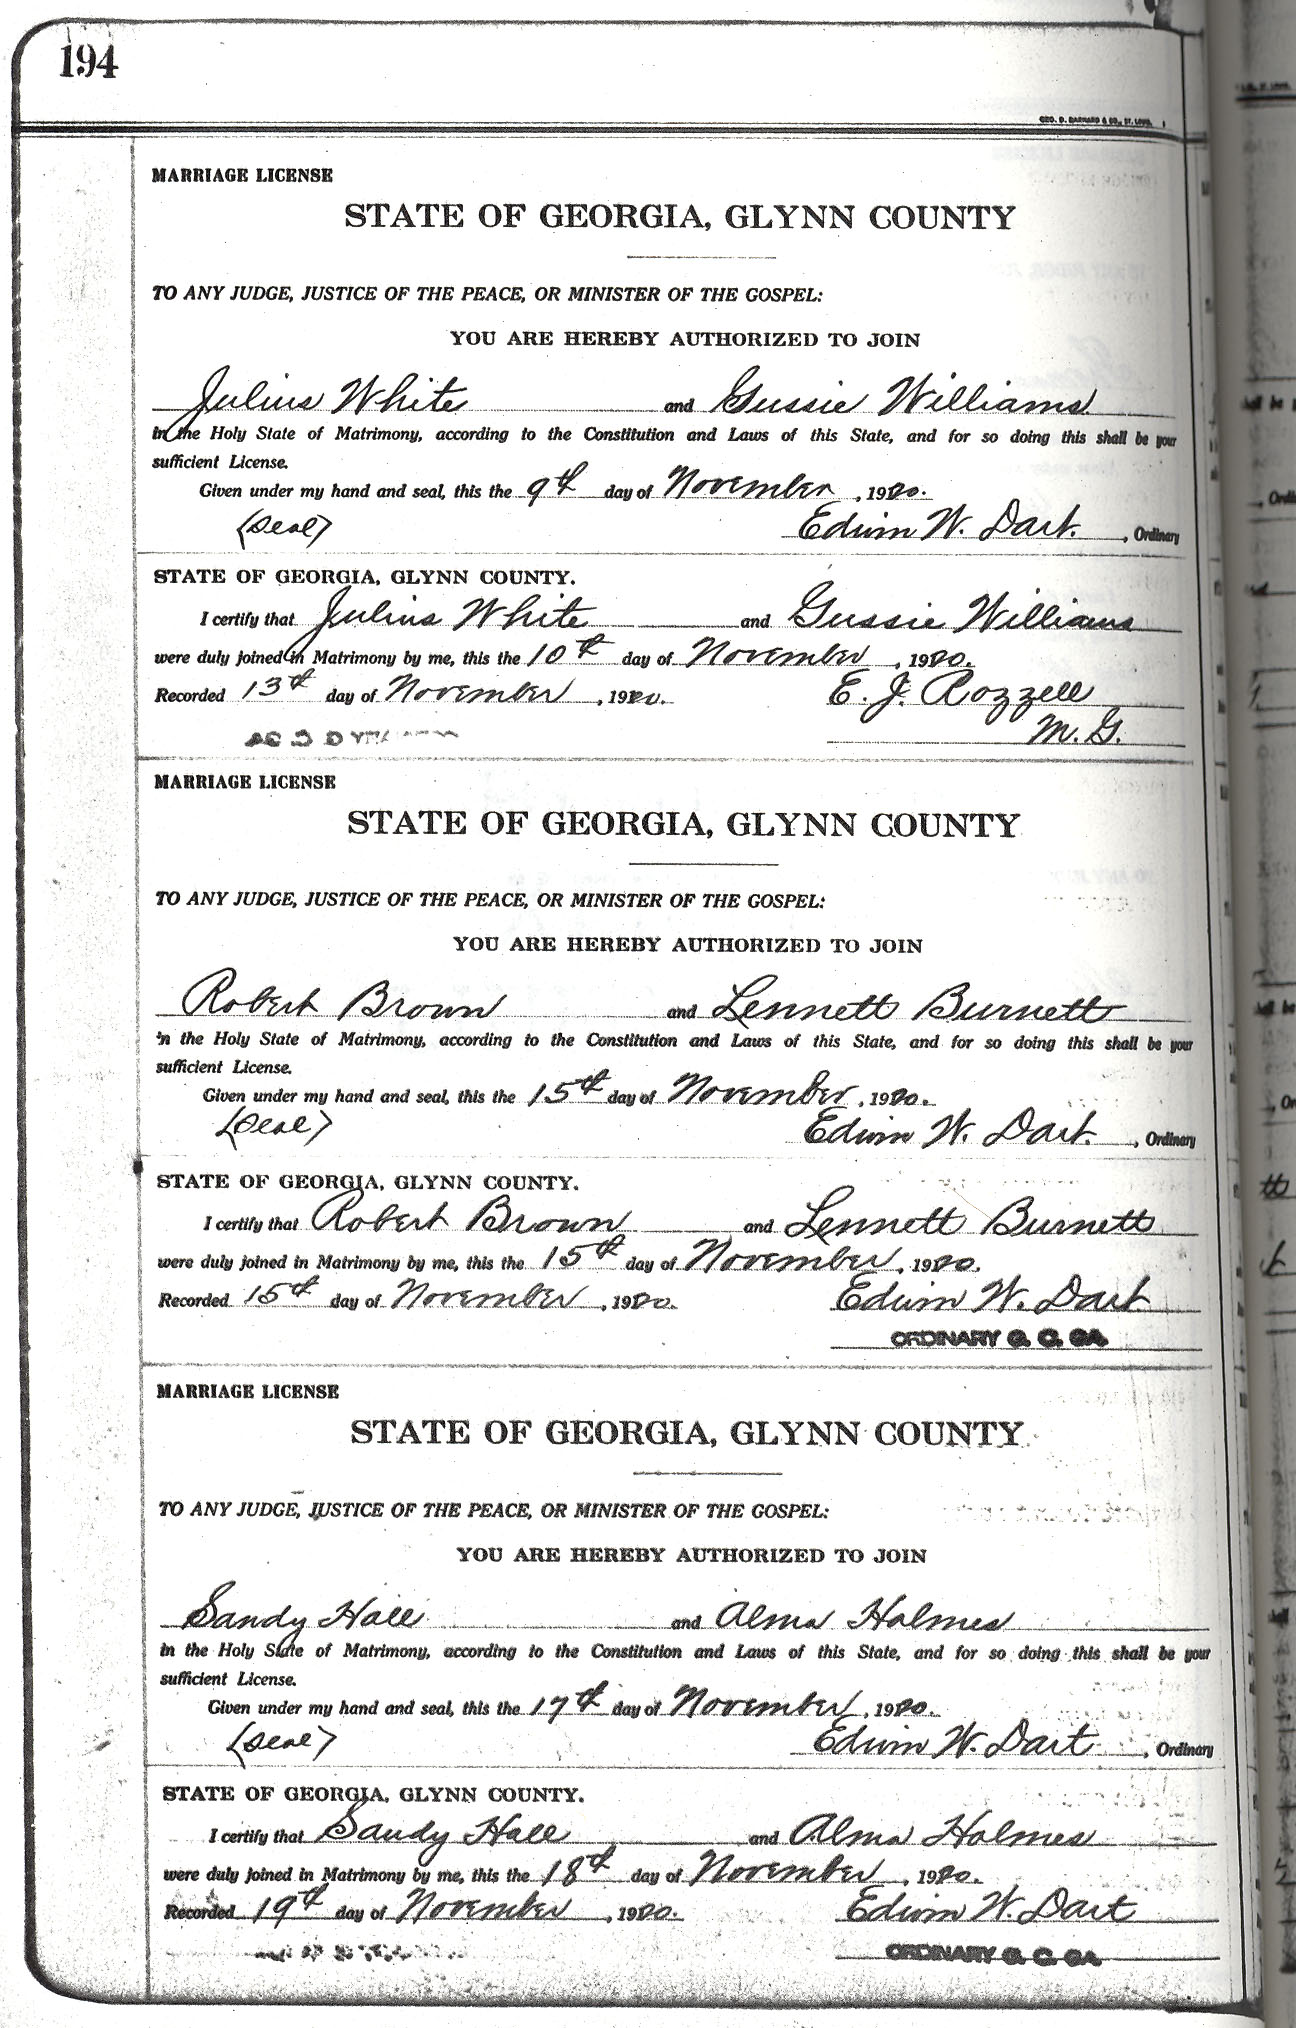 194
GEO. D. BARNARD & CO., ST. LOUIS.
MARRIAGE LICENSE
STATE OF GEORGIA, GLYNN COUNTY
TO ANY JUDGE, JUSTICE OF THE PEACE, OR MINISTER OF THE GOSPEL:
YOU ARE HEREBY AUTHORIZED TO JOIN
Julius White and Gussie Williams
in the Holy State of Matrimony, according to the Constitution and Laws of this State, and for so doing this shall be your
sufficient License.
Given under my hand and seal, this the 9th day of November, 1920.
(Seal) Edwin W. Dart., Ordinary
STATE OF GEORGIA, GLYNN COUNTY.
I certify that Julius White and Gussie Williams
were duly joined in Matrimony by me, this the 10th day of November, 1920.
Recorded 13th day of November, 1920. E. J. Rozzell
M. G.
MARRIAGE LICENSE
STATE OF GEORGIA, GLYNN COUNTY
TO ANY JUDGE, JUSTICE OF THE PEACE, OR MINISTER OF THE GOSPEL:
YOU ARE HEREBY AUTHORIZED TO JOIN
Robert Brown and Lennett Burnett
in the Holy State of Matrimony, according to the Constitution and Laws of this State, and for so doing this shall be your
sufficient License.
Given under my hand and seal, this the 15th day of November, 1920.
(Seal) Edwin W. Dart., Ordinary
STATE OF GEORGIA, GLYNN COUNTY.
I certify that Robert Brown and Lennett Burnett
were duly joined in Matrimony by me, this the 15th day of November, 1920.
Recorded 15th day of November, 1920. Edwin W. Dart
ORDINARY G. C. GA.
MARRIAGE LICENSE
STATE OF GEORGIA, GLYNN COUNTY
TO ANY JUDGE, JUSTICE OF THE PEACE, OR MINISTER OF THE GOSPEL:
YOU ARE HEREBY AUTHORIZED TO JOIN
Sandy Hall and Alma Holmes
in the Holy State of Matrimony, according to the Constitution and Laws of this State, and for so doing this shall be your
sufficient License.
Given under my hand and seal, this the 17th day of November, 1920.
(Seal) Edwin W. Dart, Ordinary
STATE OF GEORGIA, GLYNN COUNTY.
I certify that Sandy Hall and Alma Holmes
were duly joined in Matrimony by me, this the 18th day of November, 1920.
Recorded 19th day of November, 1920. Edwin W. Dart
ORDINARY G. C. GA.